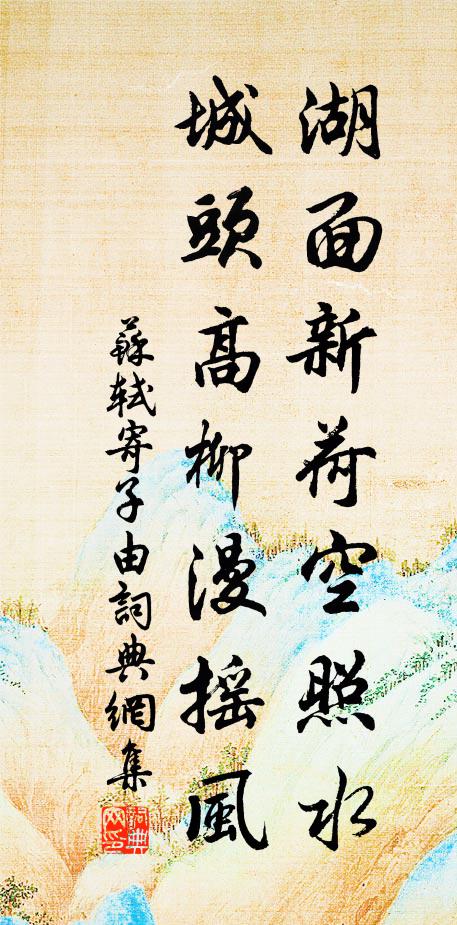 湖面新荷空照水
城頭高柳漫摇風
蘇軾寄子由詞典網集
詞典
网印